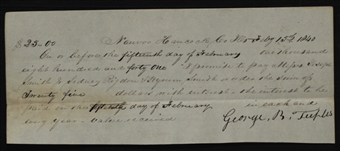 $25.00 Nauvoo Hancock Co. Ills Feby 15th 1840
On or before the fifteenth day of February one thousand
eight hundred and forty one I promise to pay Joseph
Smith & Sidney Rigdon Hyrum Smith order the sum of
Twenty five dollars with interest the interest to be
paid on the fifteenth day of February in each and
every year value received
George B.